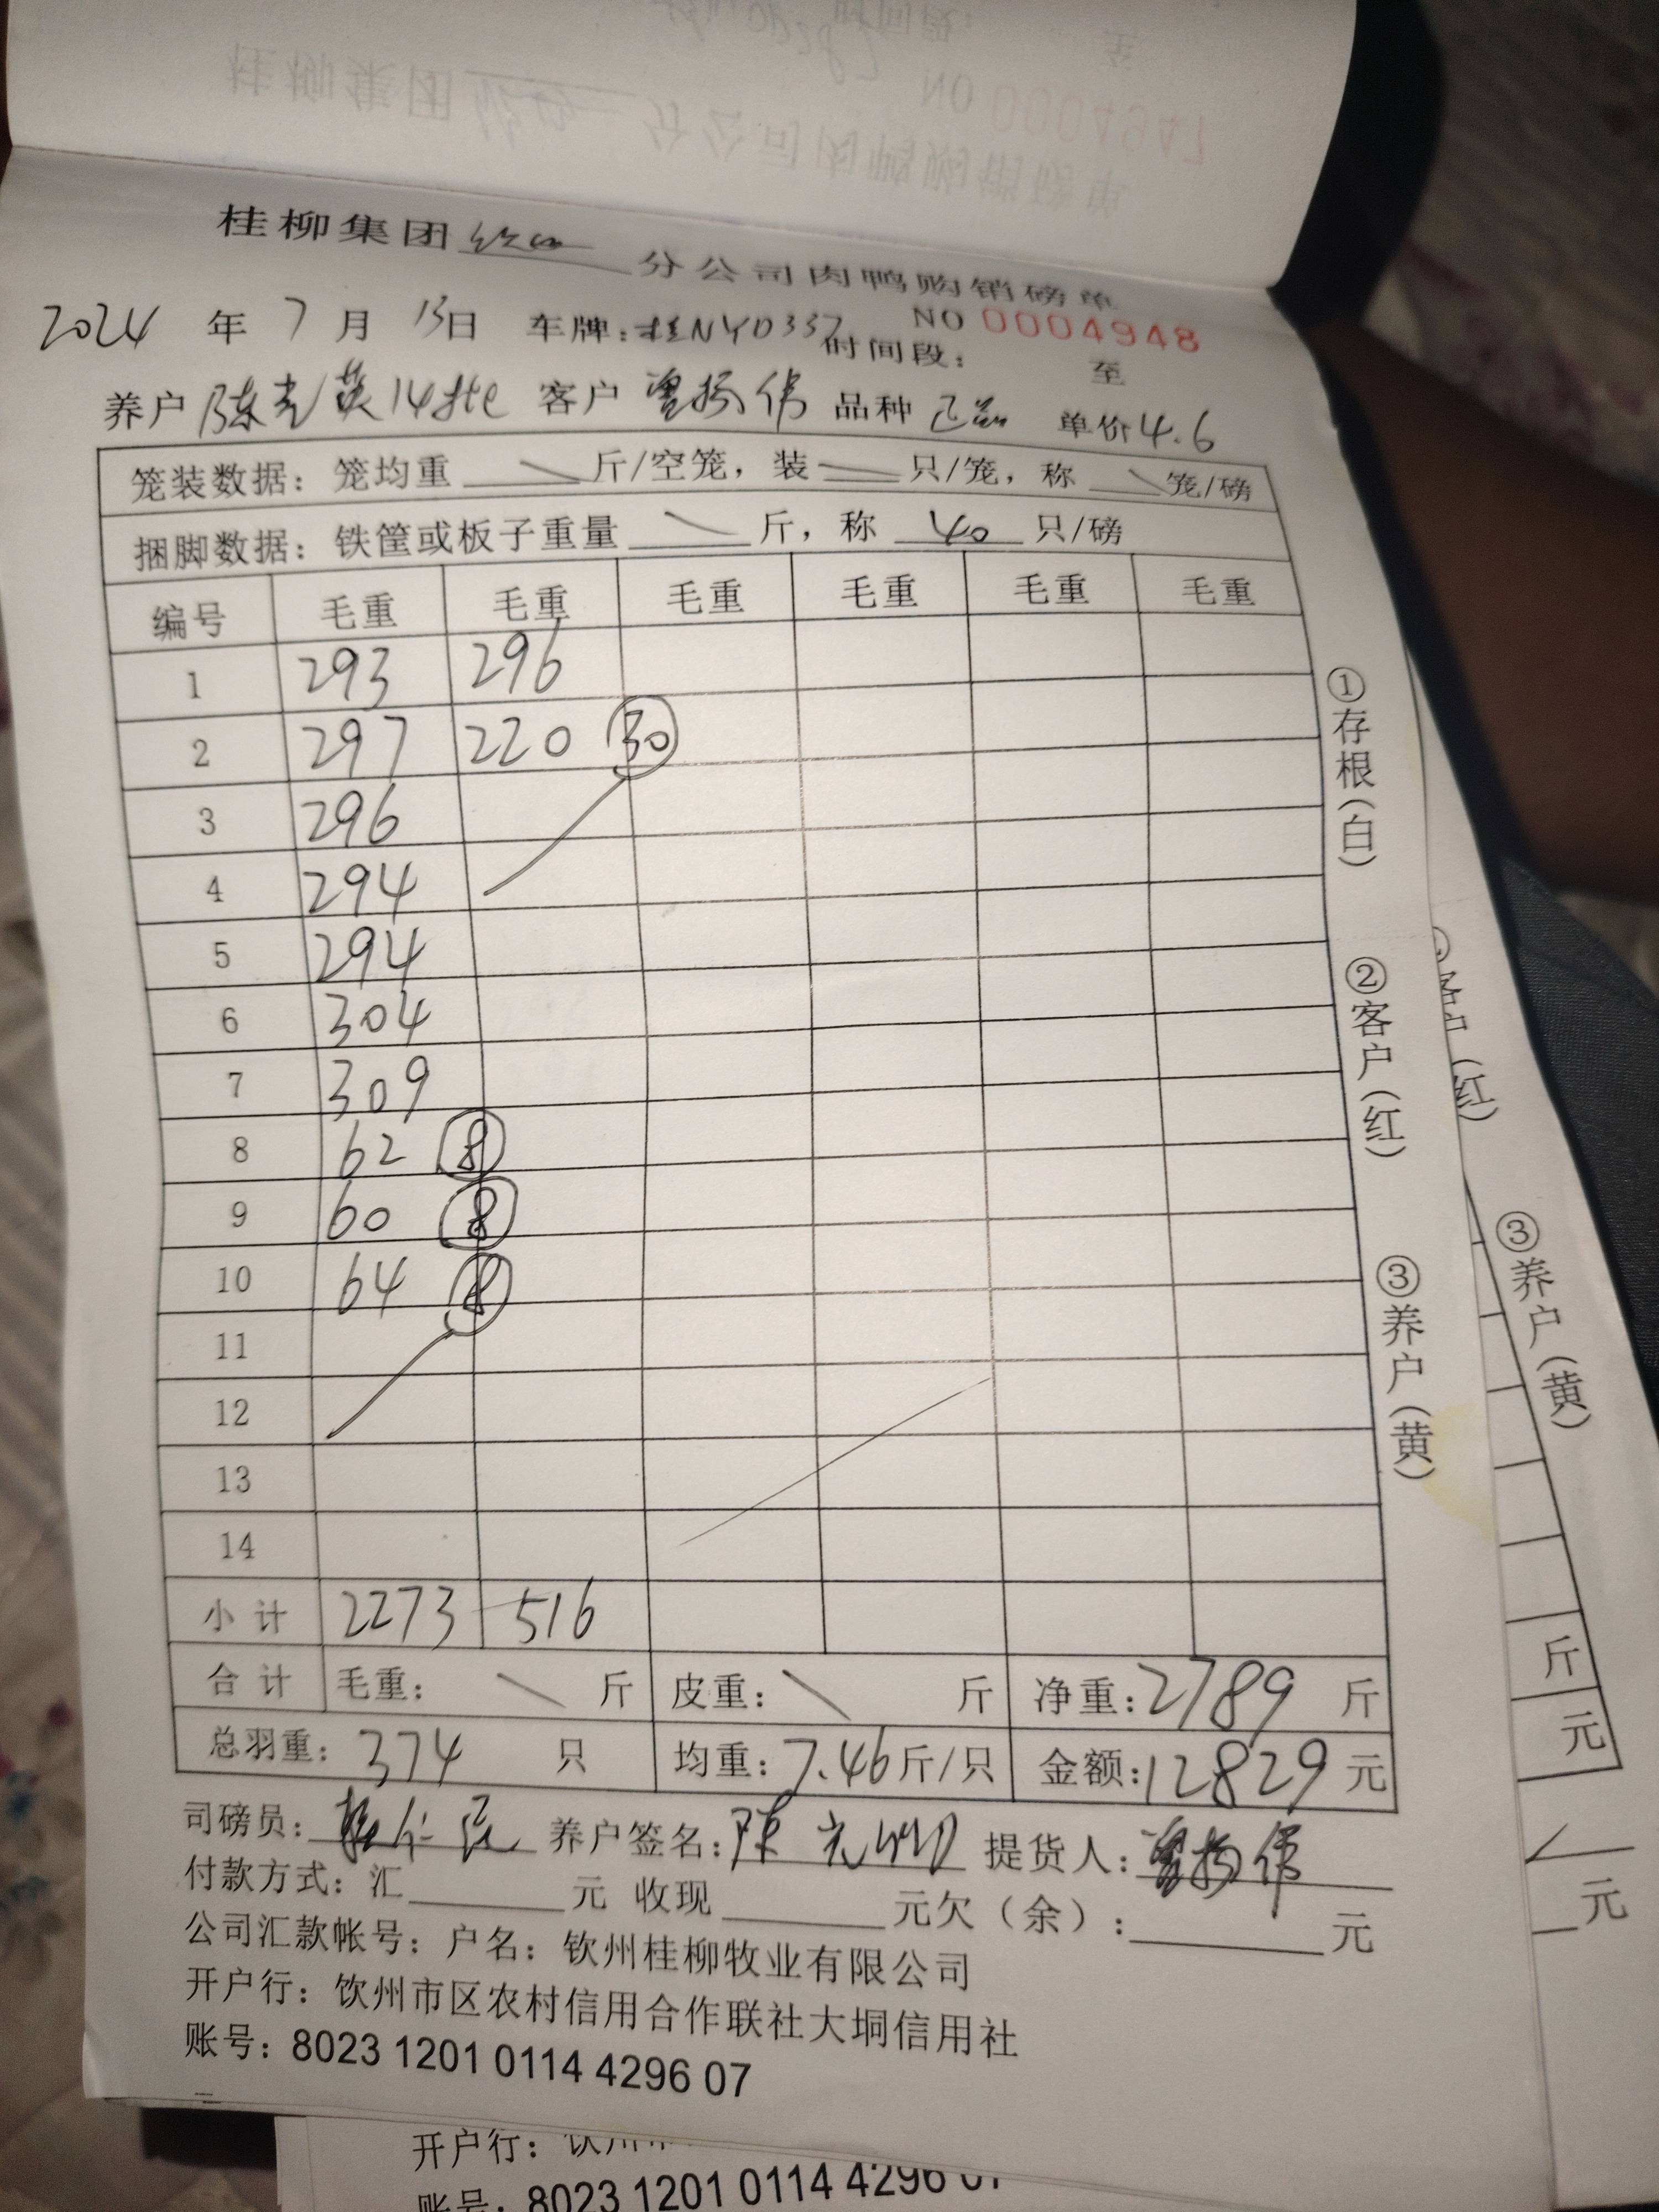 桂柳集团 分公司肉鸭购销磅单
NO 0004948
2024 年 7 月 13日 车牌:桂NYD337 时间段: 至
养户 陈 英14批 客户 曾扬伟 品种 单价4.6
笼装数据: 笼均重 斤/空笼, 装 只/笼, 称 笼/磅
捆脚数据: 铁筐或板子重量 斤, 称 40 只/磅
编号 毛重 毛重 毛重 毛重 毛重 毛重
1 293 296
2 297 220 30
3 296
4 294
5 294
6 304
7 309
8 62 8
9 60 8
10 64 8
11
12
13
14
小计 2273 516
合计 毛重: 斤 皮重: 斤 净重:2789 斤
总羽重: 374 只 均重:7.46斤/只 金额:12829元
司磅员: 养户签名:陈 提货人:曾扬伟
付款方式: 汇 元 收现 元欠(余): 元
公司汇款帐号: 户名: 钦州桂柳牧业有限公司
开户行: 饮州市区农村信用合作联社大垌信用社
账号: 8023 1201 0114 4296 07
①存根(白) ②客户(红) ③养户(黄)
(红)
③养户(黄)
斤
元
元
开户行:
账号: 8023 1201 0114 4296
NO 0004947